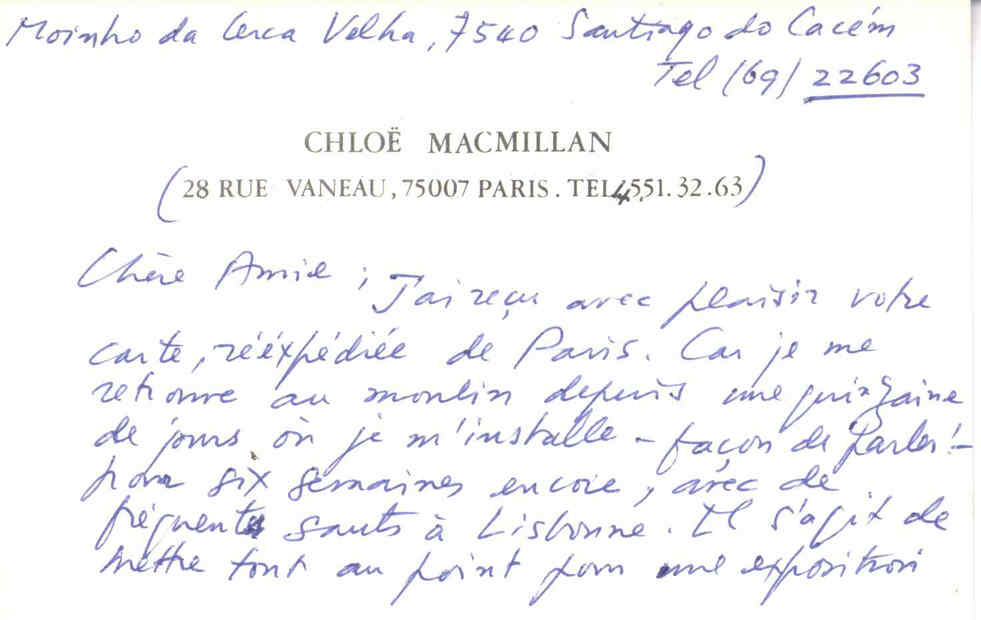 Moinho da Cerca Velha, 7540 Santiago do Cacém
Tel (69) 22603
CHLOË MACMILLAN
(28 RUE VANEAU, 75007 PARIS. TEL 4551.32.63)
Chère Amie ; J'ai reçu avec plaisir votre
carte, réexpédiée de Paris. Car je me
retrouve au moulin depuis une quinzaine
de jours où je m'installe - façon de parler! -
pour six semaines encore, avec de
fréquents sauts à Lisbonne. Il s'agit de
mettre tout au point pour une exposition